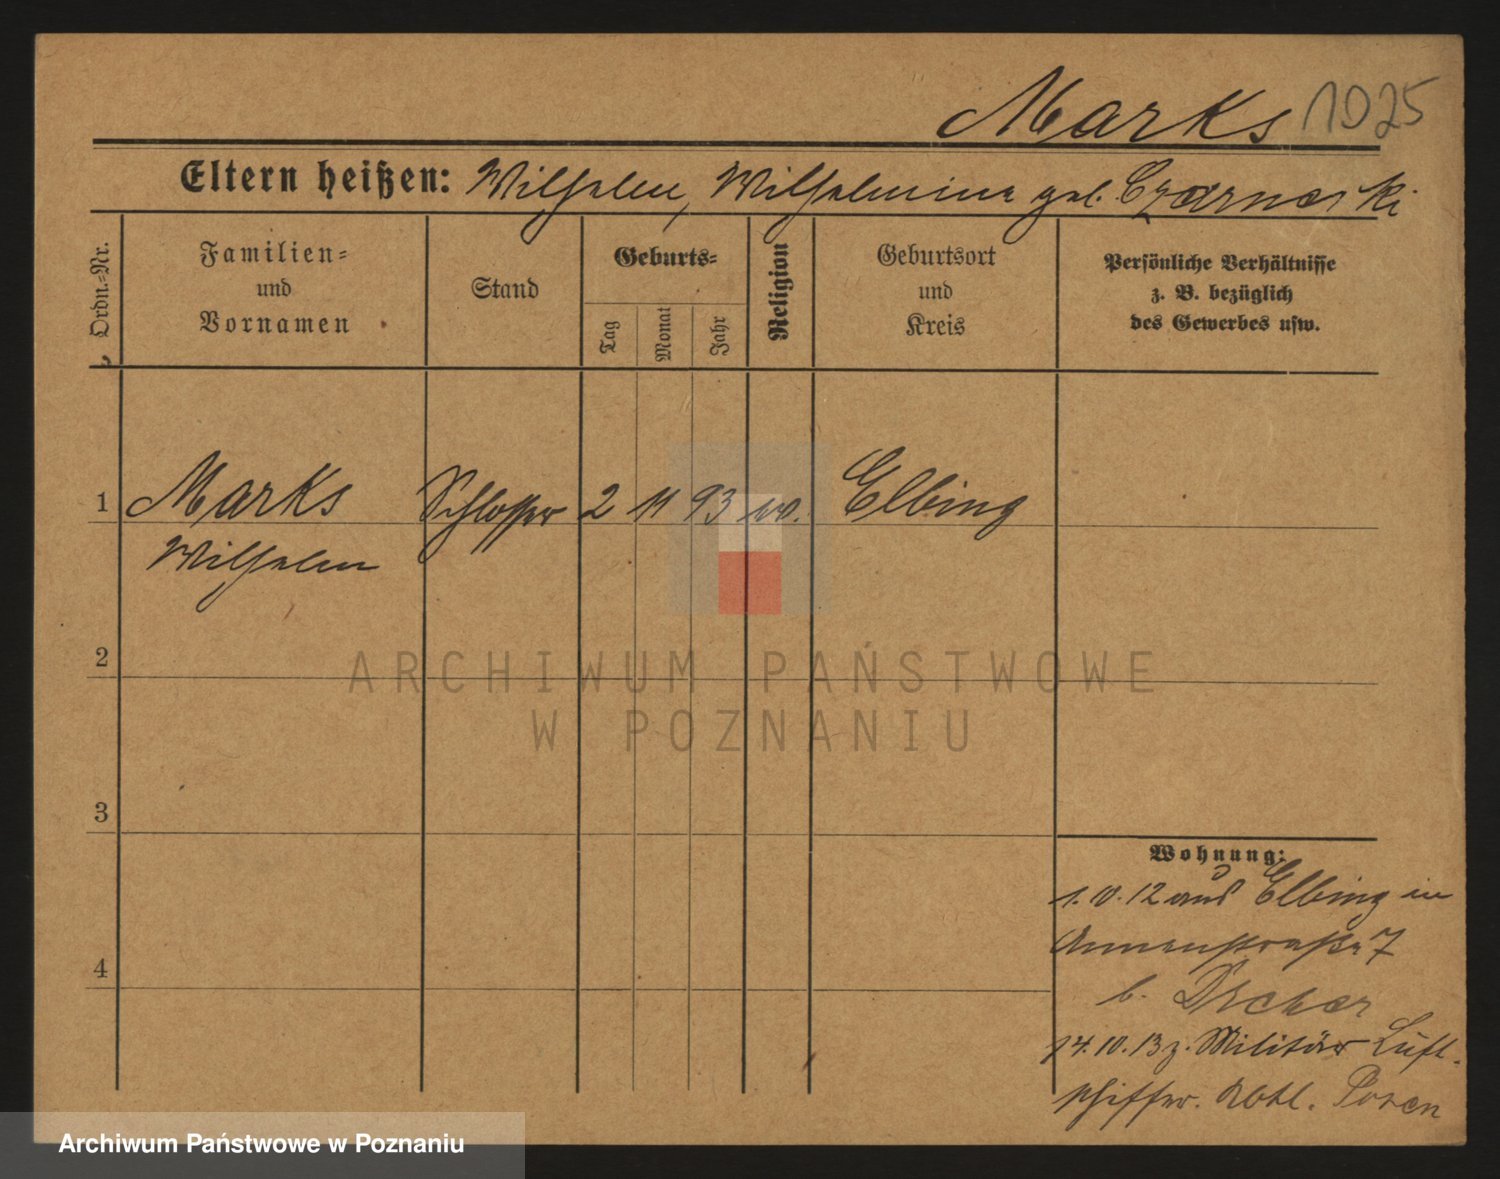 Marks 1025
Eltern heißen: Wilhelm, Wilhelmine geb. Czarnetzki
Ordn.-Nr.
Familien-
und
Vornamen
Stand
Geburts-
Tag
Monat
Jahr
Religion
Geburtsort
und
Kreis
Persönliche Verhältnisse
z. B. bezüglich
des Gewerbes usw.
1 Marks Schlosser 2 11 93 ev. Elbing
Wilhelm
2
ARCHIWUM PAŃSTWOWE
W POZNANIU
3
Wohnung:
1.10.12 aus Elbing in
Annenstraße 7
4
b.
14.10.13 z. Militär Luft-
schiffer. Abtl. Posen
Archiwum Państwowe w Poznaniu